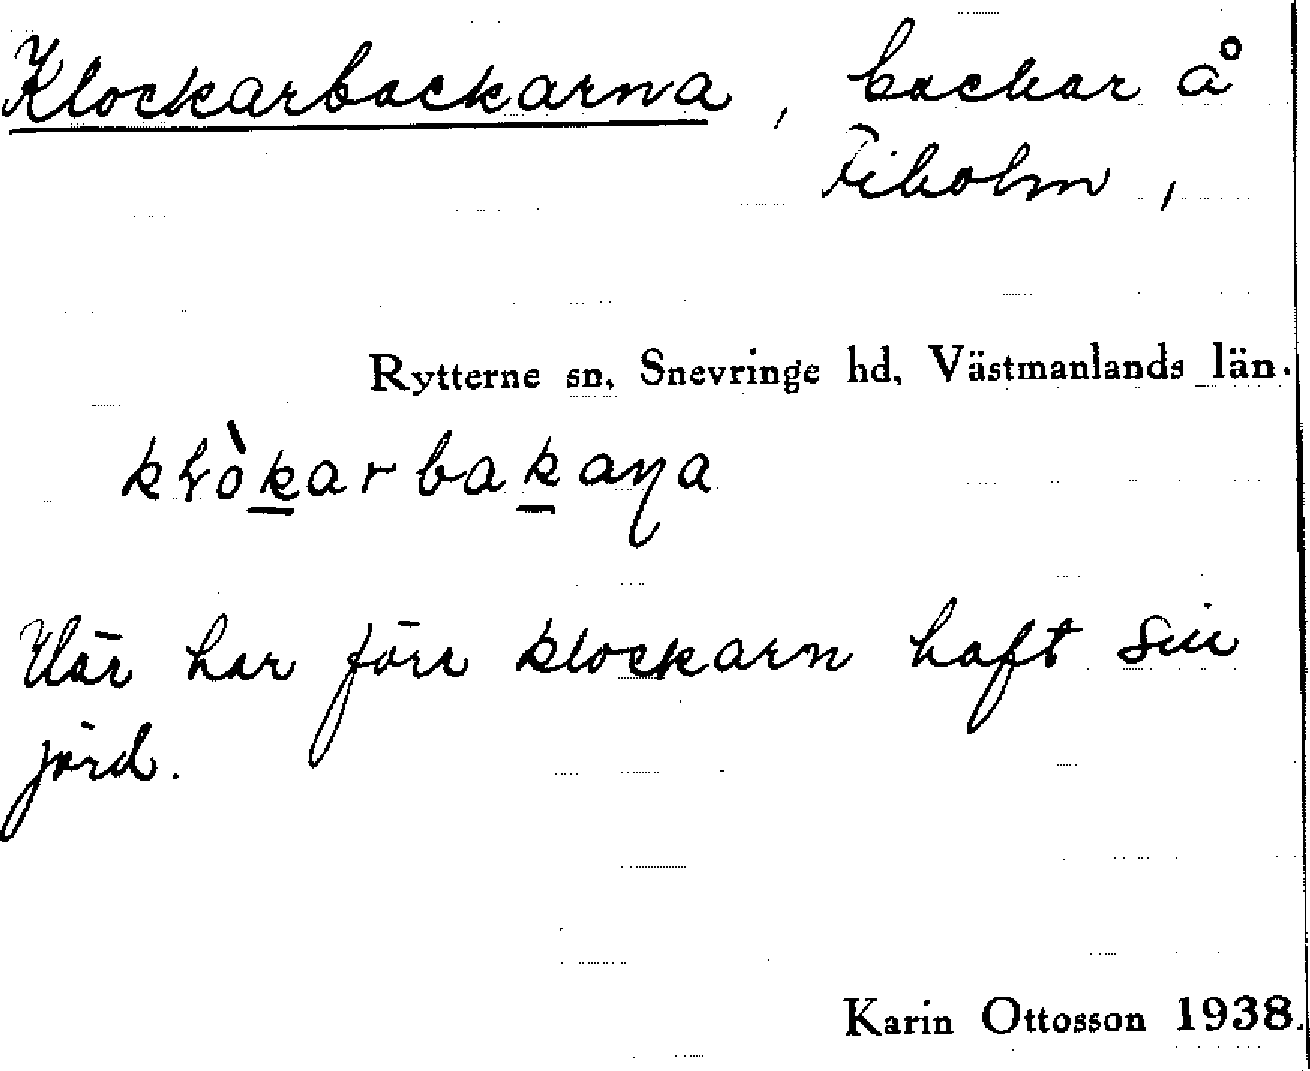 Klockarbackarna, backar å
Fiholm,
Rytterne sn, Snevringe hd, Västmanlands län.
kɽòk̲arbak̲aɳa
Här har förr klockarn haft sin
jord.
Karin Ottosson 1938.